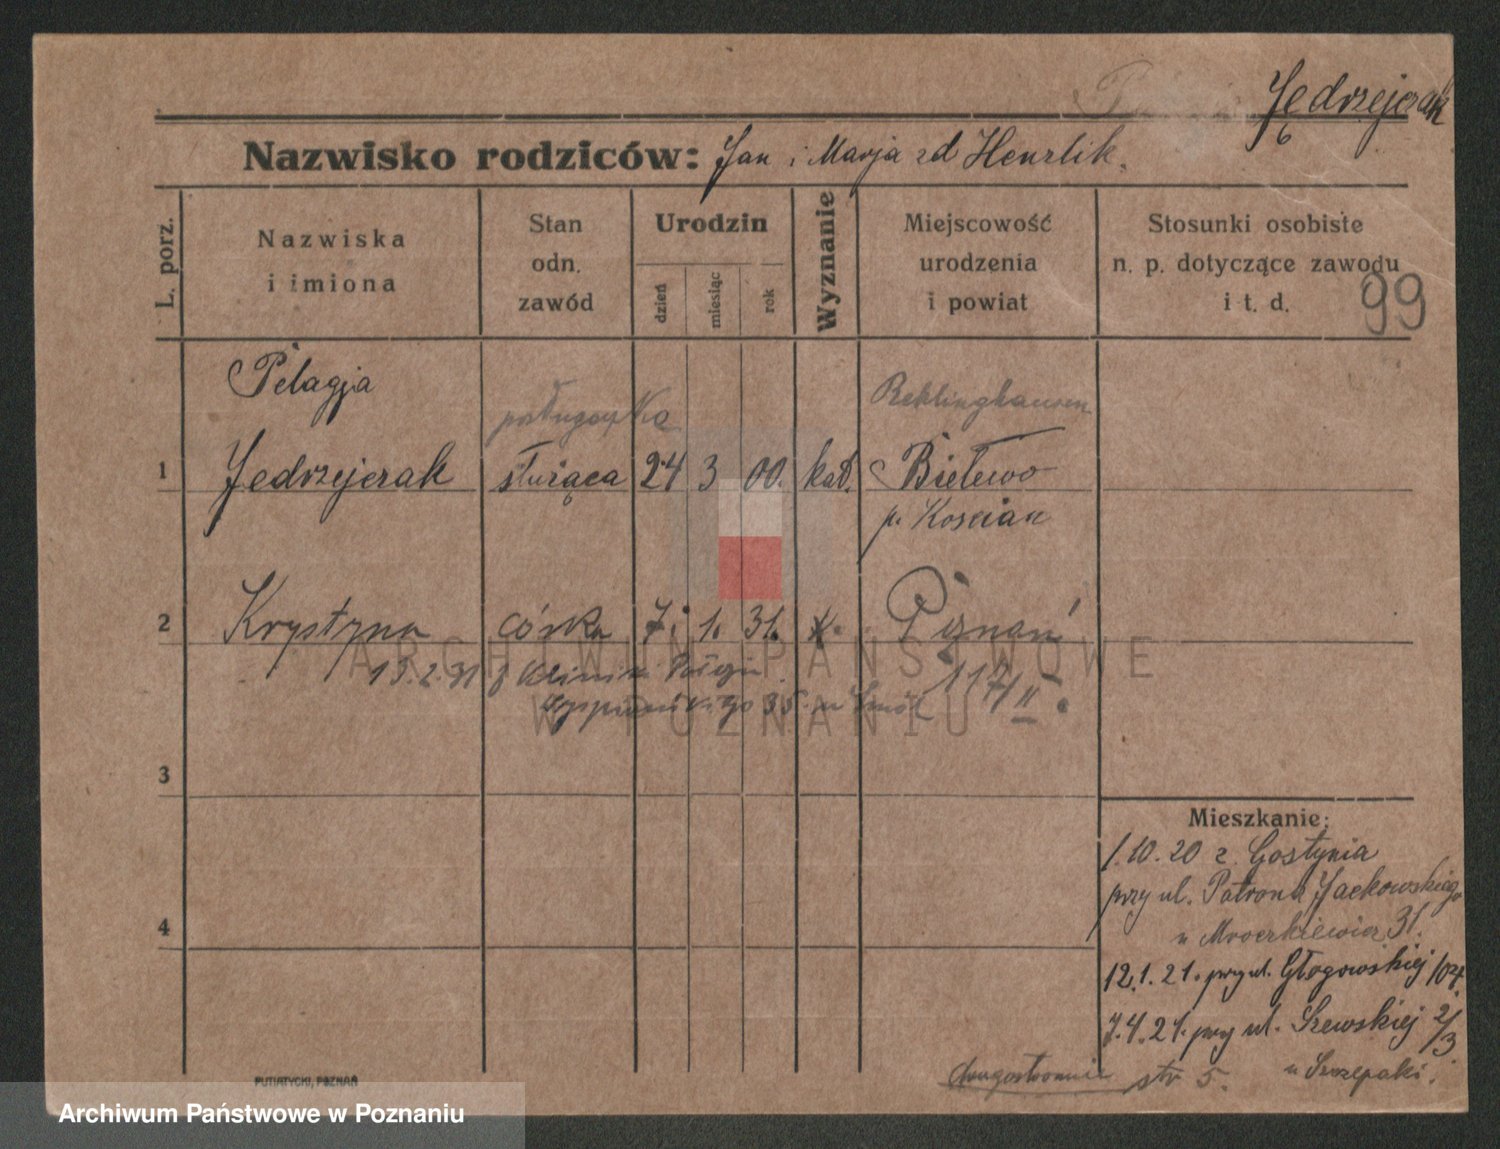 Jędrzejczak
Nazwisko rodziców: Jan i Marja zd Henrlik.
L. porz.
Nazwiska
i imiona
Stan
odn.
zawód
Urodzin
dzień
miesiąc
rok
Wyznanie
Miejscowość
urodzenia
i powiat
Stosunki osobiste
n. p. dotyczące zawodu
i t. d.
99
Pelagja
posługaczka
Reklinghausen
1 Jędrzejczak służąca 24 3 00. kat. Bielewo
p. Koscian
2 Krystyna córka 7. 1. 31. k. Poznań
ARCHIWUM PAŃSTWOWE
W POZNANIU
13.2.31 z Kliniki
35. 117/II.
3
4
Mieszkanie:
1.10.20 z Gostynia
przy ul. Patrona Jackowskiego
u Mroczkiewicz 31.
12.1.21. przy ul. Głogowskiej 104.
7.4.21. przy ul. Szewskiej 2/3
u Szczepski.
drugostronnie str 5.
PUTIATYCKI, POZNAŃ
Archiwum Państwowe w Poznaniu